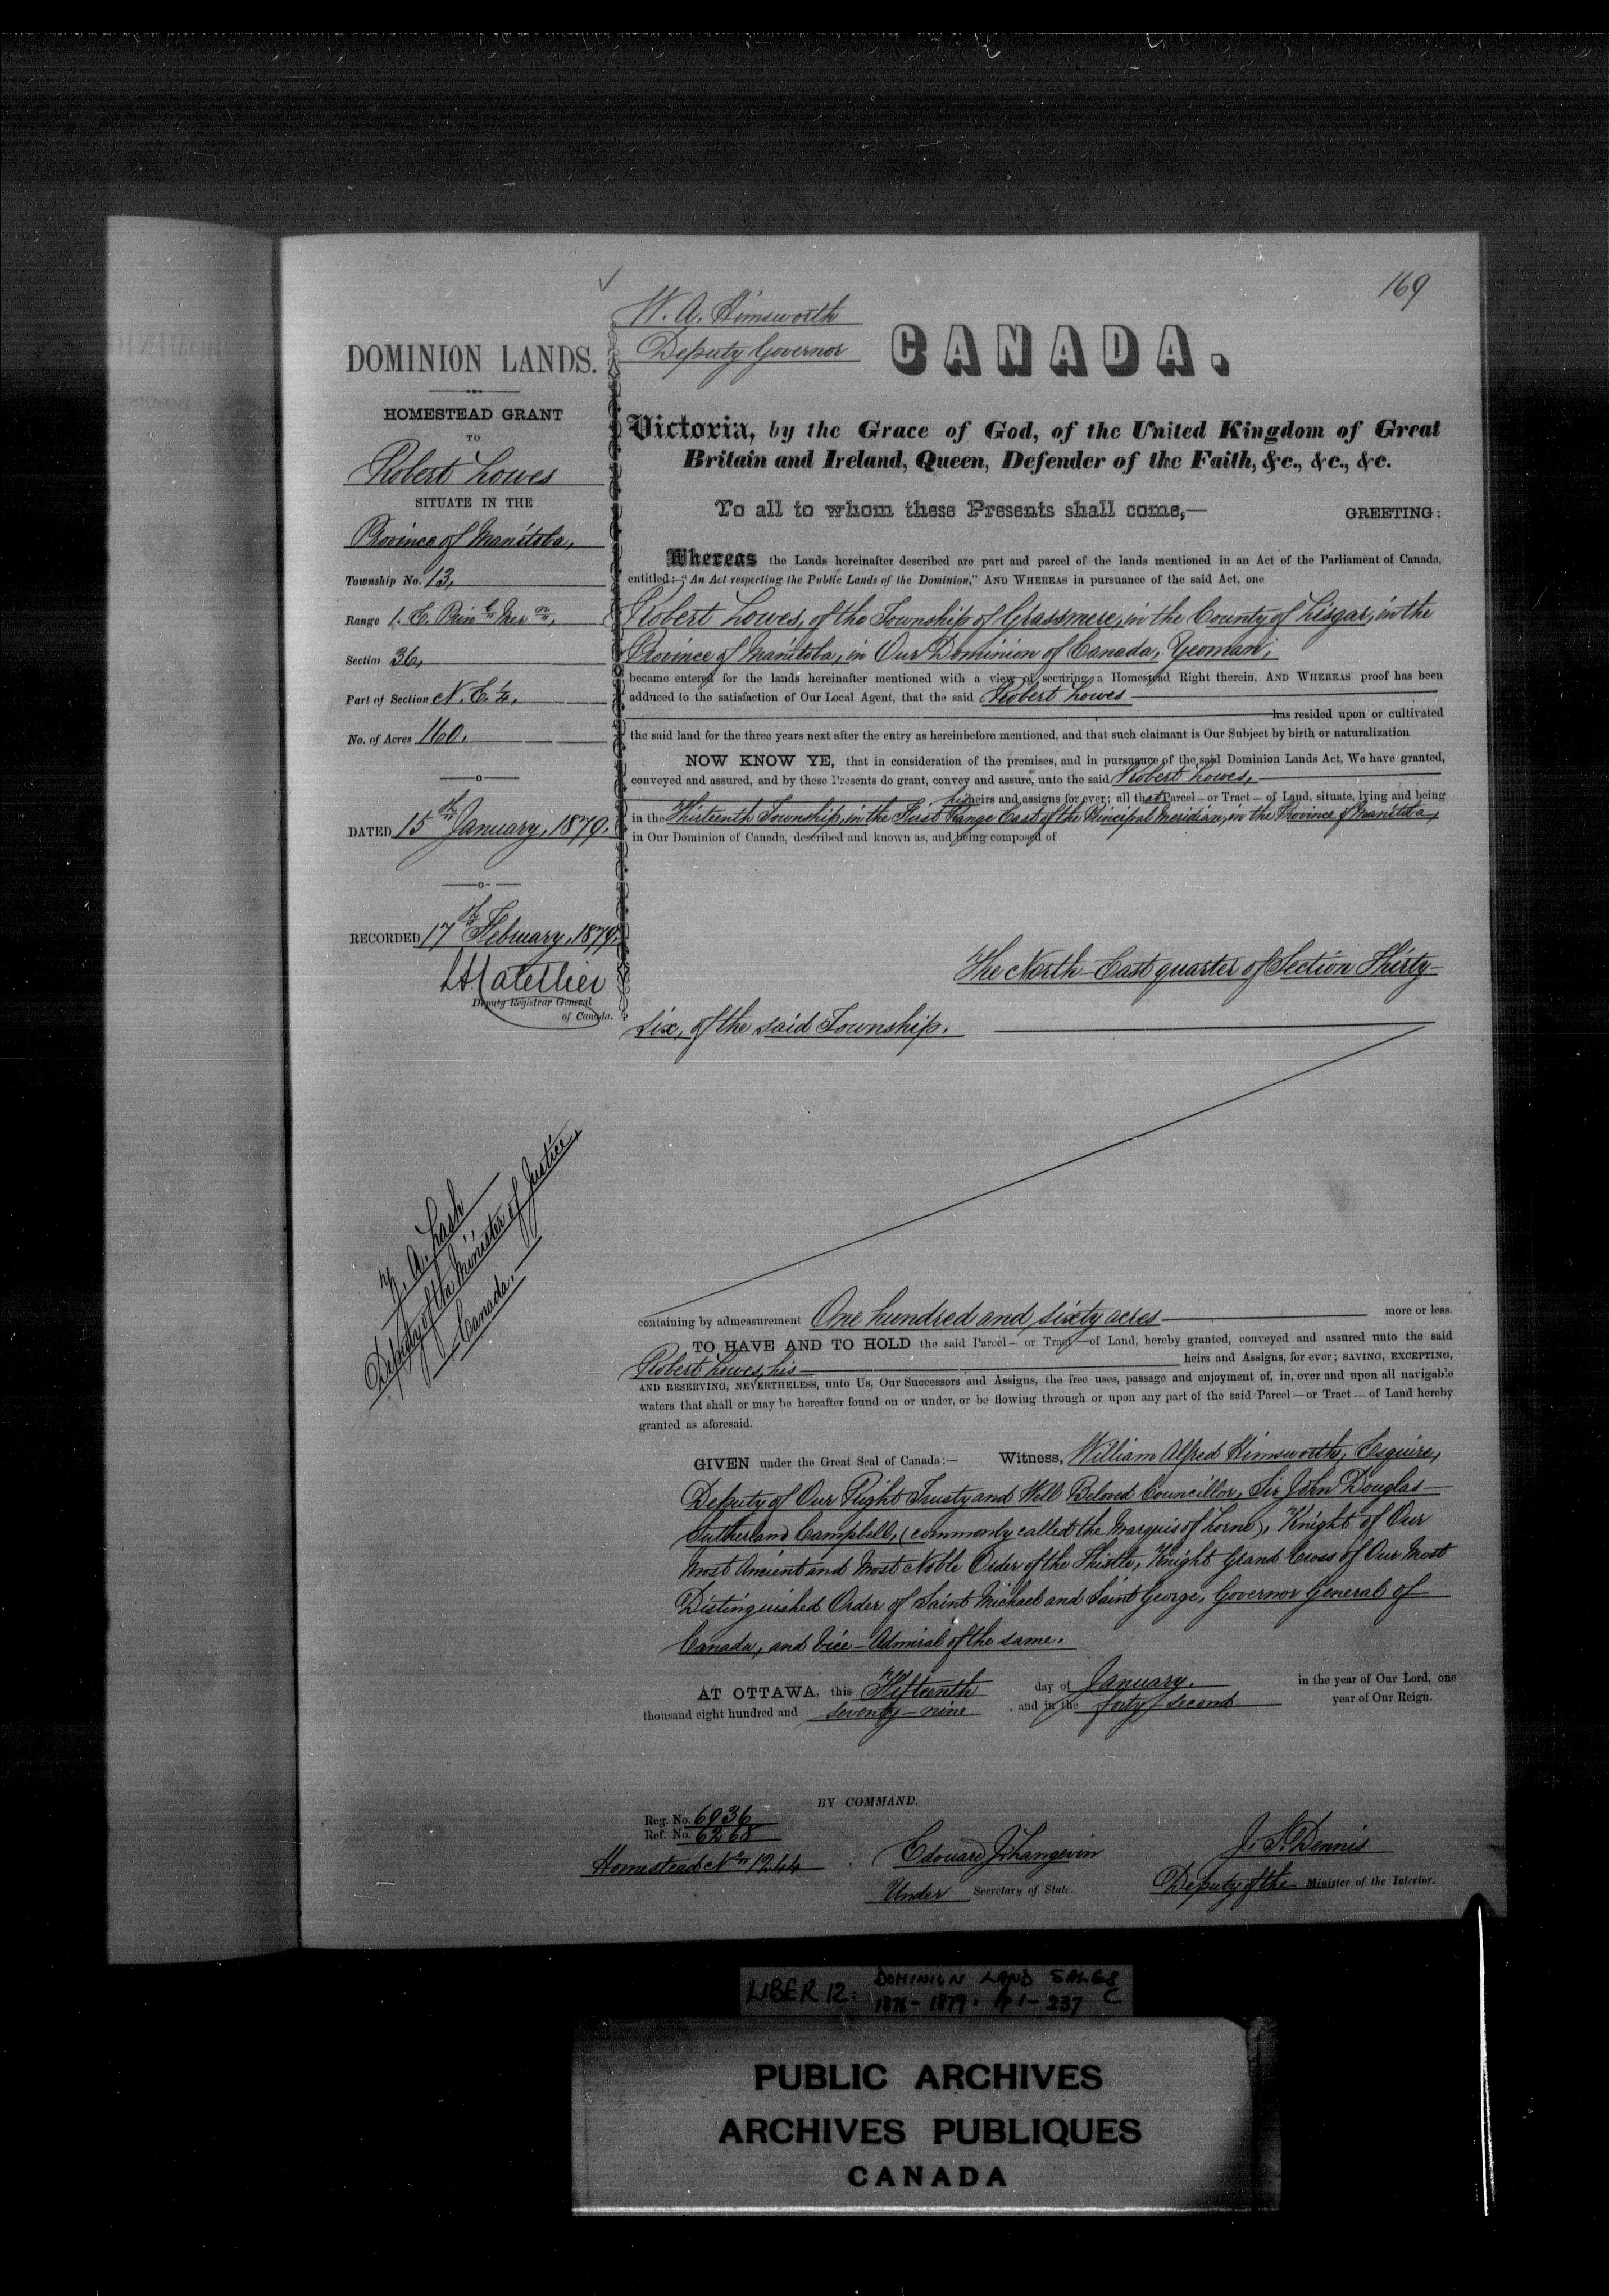 169
W. A. Himsworth
Deputy Governor
CANADA.
DOMINION LANDS.
HOMESTEAD GRANT
TO
Robert Lowes
SITUATE IN THE
Province of Manitoba,
Township No. 13,
Range 1. E. Prin l Mer n,
Section 36,
Part of Section N. E. ¼,
No. of Acres 160.
DATED 15th January, 1879.
RECORDED 17th February, 1879.
Deputy Registrar General
of Canada.
Z. A. Lash
Deputy of the Minister of Justice,
Canada.
Victoria, by the Grace of God, of the United Kingdom of Great
Britain and Ireland, Queen, Defender of the Faith, &c., &c., &c.
To all to whom these Presents shall come,— GREETING:
Whereas the Lands hereinafter described are part and parcel of the lands mentioned in an Act of the Parliament of Canada,
entitled: "An Act respecting the Public Lands of the Dominion," AND WHEREAS in pursuance of the said Act, one
Robert Lowes, of the Township of Grassmere, in the County of Lisgar, in the
Province of Manitoba, in Our Dominion of Canada, Yeoman,
became entered for the lands hereinafter mentioned with a view of securing a Homestead Right therein, AND WHEREAS proof has been
adduced to the satisfaction of Our Local Agent, that the said Robert Lowes
has resided upon or cultivated
the said land for the three years next after the entry as hereinbefore mentioned, and that such claimant is Our Subject by birth or naturalization
NOW KNOW YE, that in consideration of the premises, and in pursuance of the said Dominion Lands Act, We have granted,
conveyed and assured, and by these Presents do grant, convey and assure, unto the said Robert Lowes,
his heirs and assigns for ever; all that Parcel — or Tract — of Land, situate, lying and being
in the Thirteenth Township, in the First Range East of the Principal Meridian, in the Province of Manitoba,
in Our Dominion of Canada, described and known as, and being composed of
The North-East quarter of Section Thirty-
six, of the said Township.
containing by admeasurement One hundred and sixty acres more or less.
TO HAVE AND TO HOLD the said Parcel — or Tract — of Land, hereby granted, conveyed and assured unto the said
Robert Lowes, his heirs and Assigns, for ever; SAVING, EXCEPTING,
AND RESERVING, NEVERTHELESS, unto Us, Our Successors and Assigns, the free uses, passage and enjoyment of, in, over and upon all navigable
waters that shall or may be hereafter found on or under, or be flowing through or upon any part of the said Parcel — or Tract — of Land hereby
granted as aforesaid.
GIVEN under the Great Seal of Canada:— Witness, William Alfred Himsworth, Esquire,
Deputy of Our Right Trusty and Well Beloved Councillor, Sir John Douglas
Sutherland Campbell, (commonly called the Marquis of Lorne), Knight of Our
Most Ancient and Most Noble Order of the Thistle, Knight Grand Cross of Our Most
Distinguished Order of Saint Michael and Saint George, Governor General of
Canada, and Vice-Admiral of the same.
AT OTTAWA, this Fifteenth day of January, in the year of Our Lord, one
thousand eight hundred and seventy-nine, and in the forty second year of Our Reign.
BY COMMAND,
Reg. No. 6936
Ref. No. 6268
Homestead No 1244
Edouard J. Langevin
Under Secretary of State.
J. S. Dennis
Deputy of the Minister of the Interior.
LIBER 12: DOMINION LAND SALES
1876-1879. p 1-237 C
PUBLIC ARCHIVES
ARCHIVES PUBLIQUES
CANADA